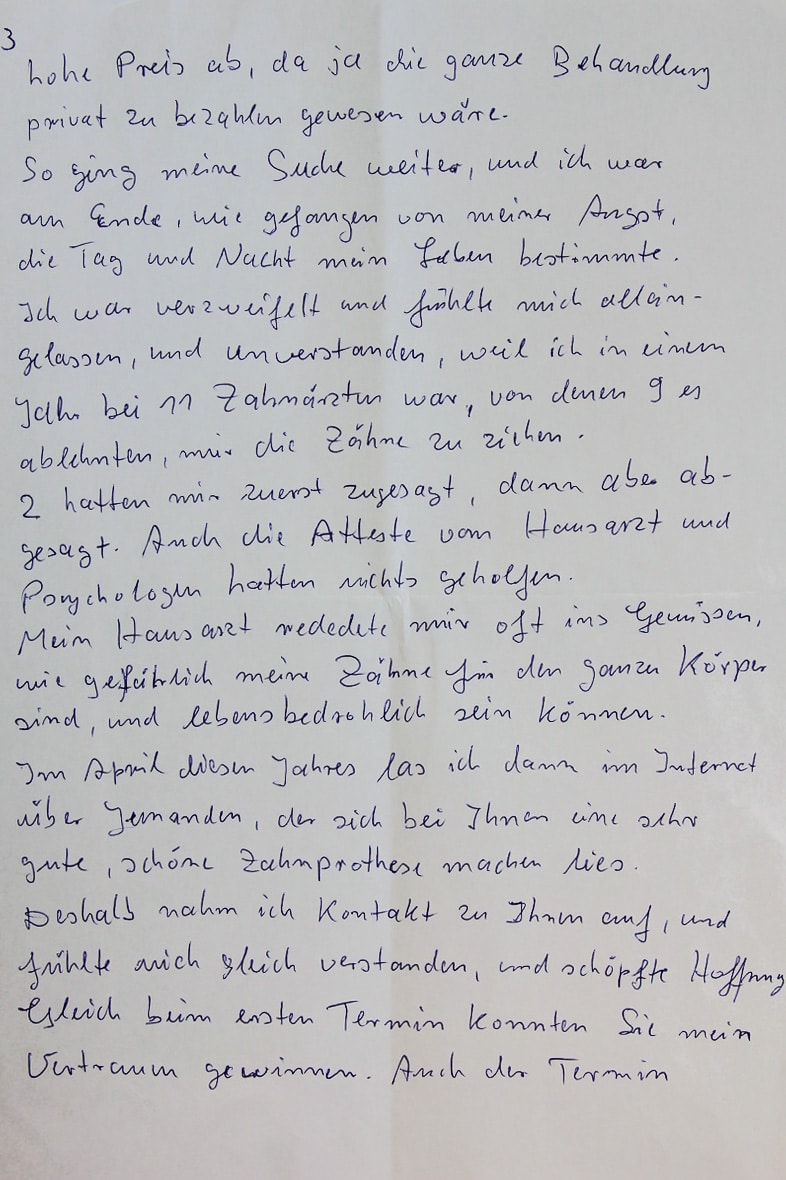 3
hohe Preis ab, da ja die ganze Behandlung
privat zu bezahlen gewesen wäre.
So ging meine Suche weiter, und ich war
am Ende, wie gefangen von meiner Angst,
die Tag und Nacht mein Leben bestimmte.
Ich war verzweifelt und fühlte mich allein-
gelassen, und unverstanden, weil ich in einem
Jahr bei 11 Zahnärzten war, von denen 9 es
ablehnten, mir die Zähne zu ziehen.
2 hatten mir zuerst zugesagt, dann aber ab-
gesagt. Auch die Atteste vom Hausarzt und
Psychologen hatten nichts geholfen.
Mein Hausarzt rededete mir oft ins Gewissen,
wie gefährlich meine Zähne für den ganzen Körper
sind, und lebensbedrohlich sein können.
Im April diesen Jahres las ich dann im Internet
über Jemanden, der sich bei Ihnen eine sehr
gute, schöne Zahnprothese machen lies.
Deshalb nahm ich Kontakt zu Ihnen auf, und
fühlte mich gleich verstanden, und schöpfte Hoffnung
Gleich beim ersten Termin konnten Sie mein
Vertrauen gewinnen. Auch der Termin